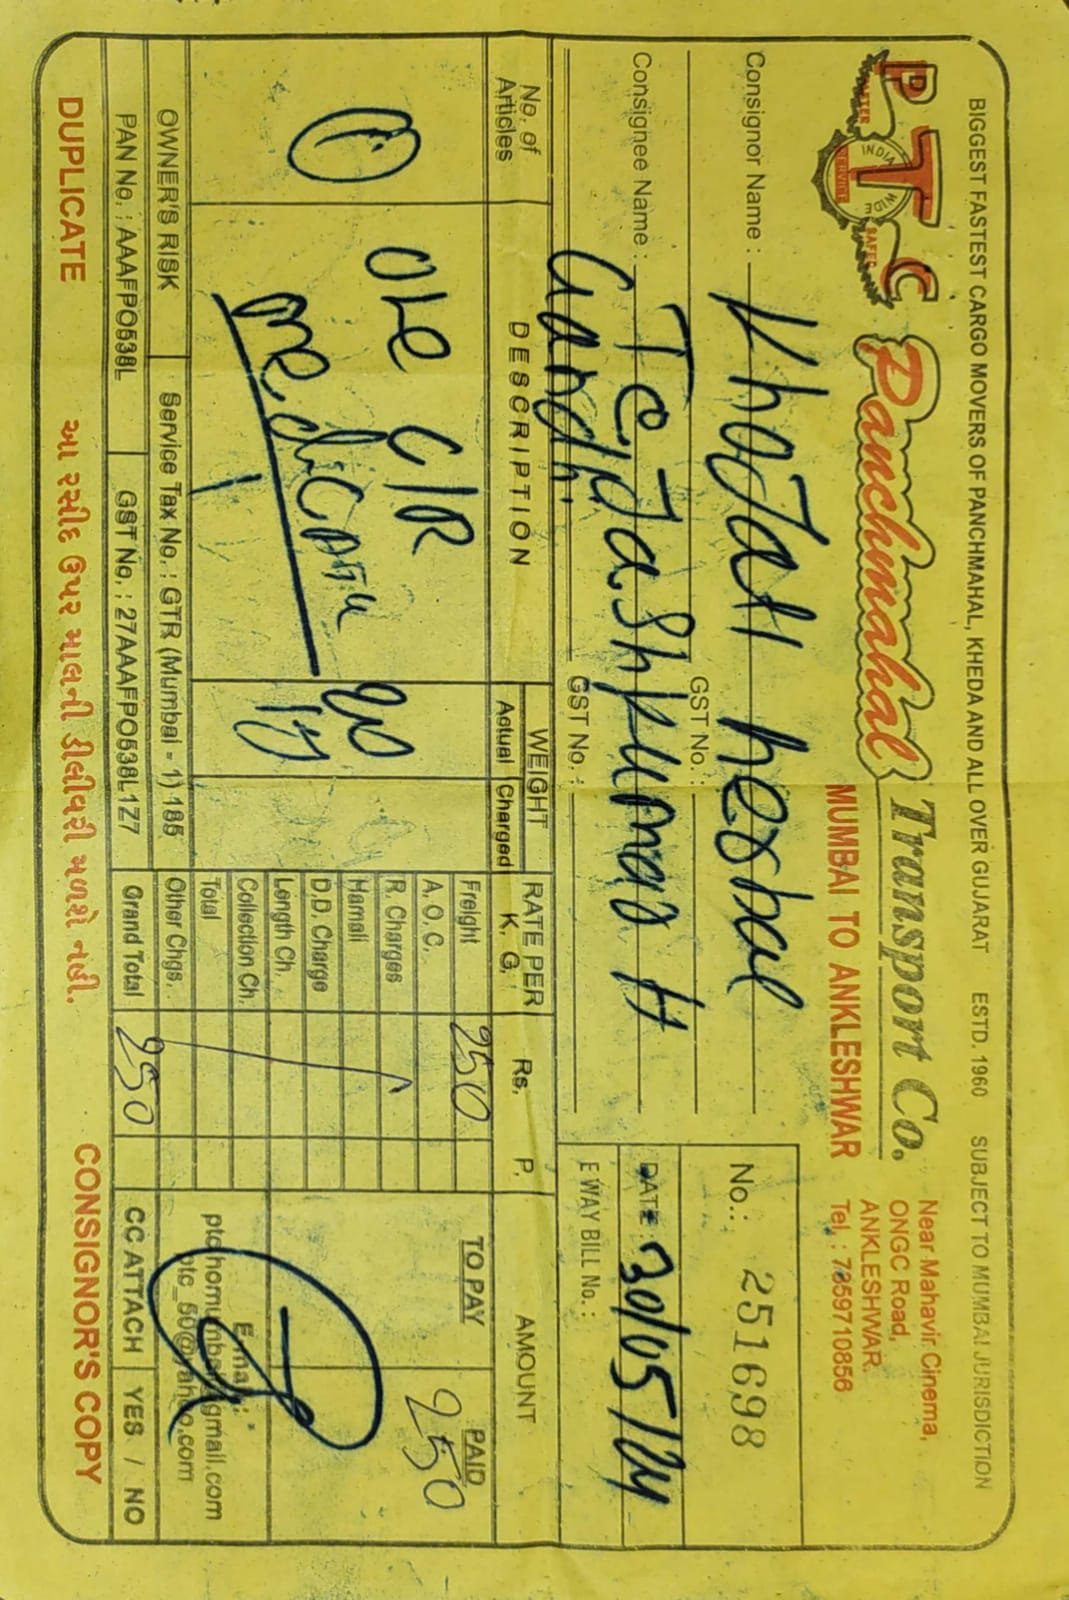 BIGGEST FASTEST CARGO MOVERS OF PANCHMAHAL, KHEDA AND ALL OVER GUJARAT ESTD. 1960 SUBJECT TO MUMBAI JURISDICTION
PTC
FASTER INDIA WIDE SAFER
SERVICE
Panchmahal Transport Co.
MUMBAI TO ANKLESHWAR
Near Mahavir Cinema,
ONGC Road,
ANKLESHWAR.
Tel.: 7259710856
Consignor Name : KhoJati herbal
GST No. :
Consignee Name : TeJashkumar H
Gandhi
GST No. :
No.: 251698
DATE: 30/05/24
E WAY BILL No. :
No. of Articles
DESCRIPTION
WEIGHT
Actual Charged
RATE PER K. G.
Rs. P.
AMOUNT
TO PAY PAID
1
one C/R
20
Freight 250
250
A.O.C.
R. Charges
Hamali
D.D. Charge
Length Ch.
Collection Ch.
Total
Other Chgs.
Grand Total 250
Email:
ptc_50@yahoo.com
OWNER'S RISK
Service Tax No. : GTR (Mumbai - 1) 185
PAN No. : AAAFPO538L
GST No. : 27AAAFPO538L1Z7
CC ATTACH YES / NO
DUPLICATE
આ રસીદ ઉપર માલની ડીલીવરી મળશે નહી.
CONSIGNOR'S COPY